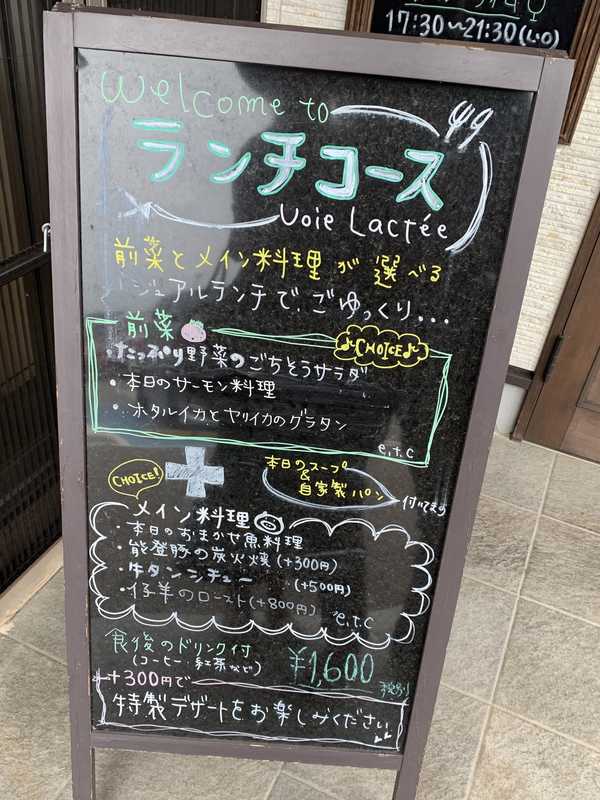 17:30～21:30(L.O)
Welcome to
ランチコース
Voie Lactée
前菜とメイン料理が選べる
ジュアルランチで、ごゆっくり...
前菜
CHOICE♪
・たっぷり野菜のごちそうサラダ
・本日のサーモン料理
・ホタルイカとヤリイカのグラタン
e.t.c
CHOICE!
本日のスープ
&
自家製パン
付いてます
メイン料理
・本日のおまかせ魚料理
・能登豚の炭火焼(+300円)
・牛タンシチュー (+500円)
・仔羊のロースト(+800円)
e.t.c
食後のドリンク付
(コーヒー・紅茶など)
¥1,600
税別
+300円で
特製デザートをお楽しみください